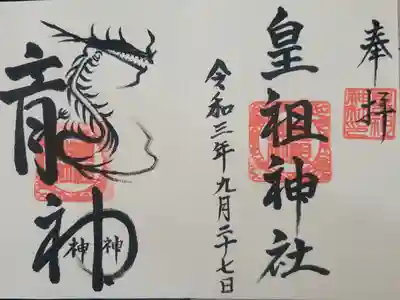 奉拝
皇祖神社
令和三年九月二十七日
龍神
神
神